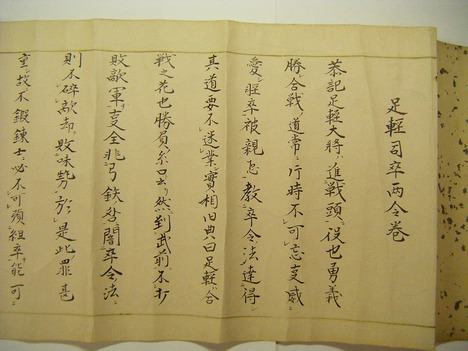 足軽司卒両令巻
恭記足軽大将進戦頭役也勇義
勝合戦道常行時不可忘変威
愛卒被親教卒令法達得
其道要不迷業實相旧典曰足軽合
戦之花也勝負糸口然到武前不打
敗敵軍変全非弓鉄闇卒令法
則不砕敵却敗味勢於是此罪甚
重故不鍛錬士必不可預組卒能可